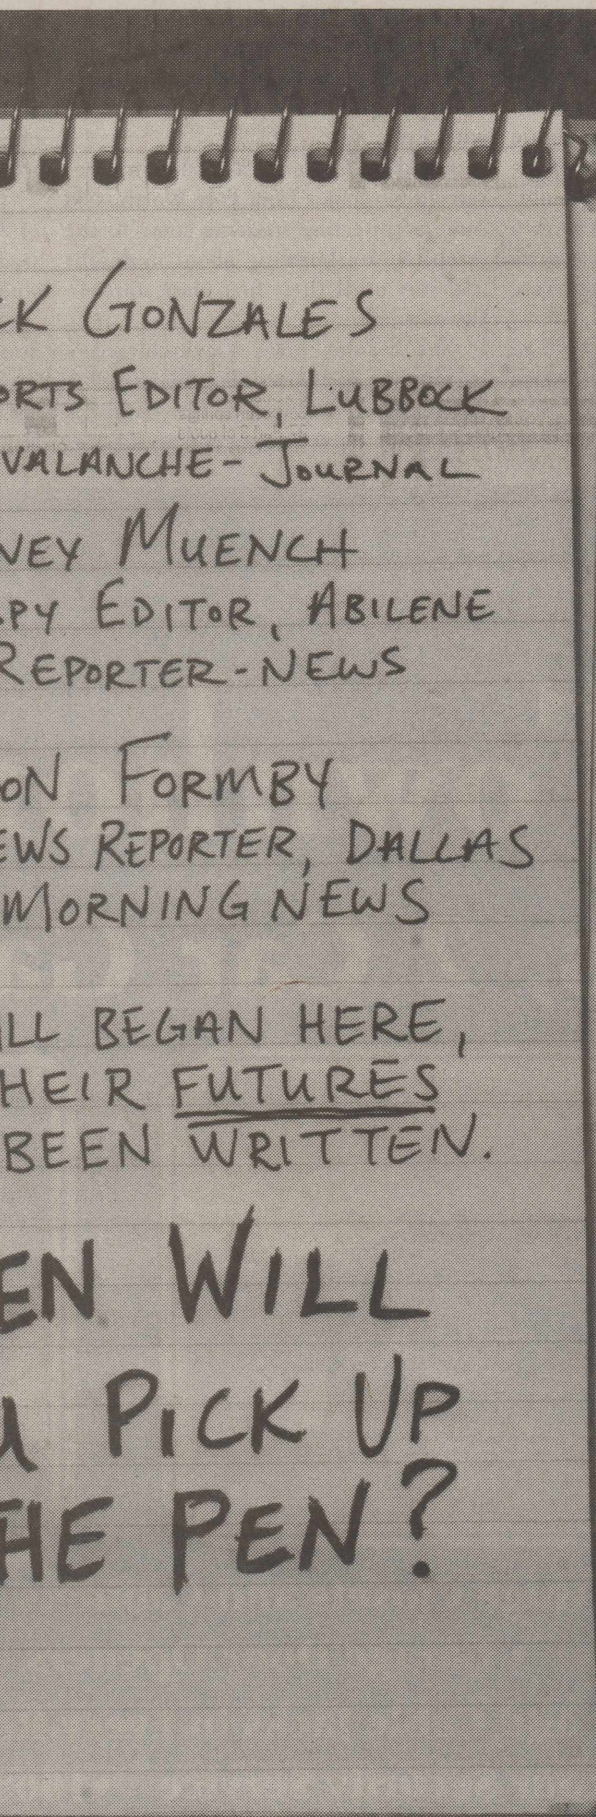 CK GONZALES
ORTS EDITOR, LUBBOCK
VALANCHE-JOURNAL
NEY MUENCH
PY EDITOR, ABILENE
REPORTER-NEWS
ON FORMBY
EWS REPORTER, DALLAS
MORNING NEWS
LL BEGAN HERE,
HEIR FUTURES
BEEN WRITTEN.
EN WILL
U PICK UP
HE PEN?